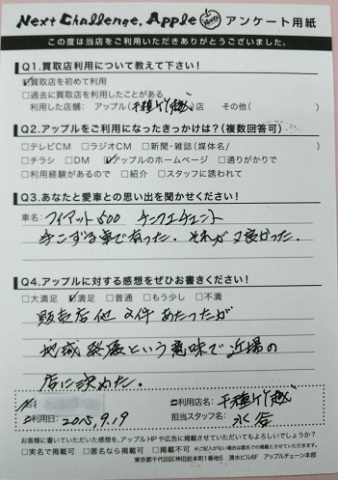 Next Challenge, Apple アンケート用紙
この度は当店をご利用いただきありがとうございました。
Q1.買取店利用について教えて下さい!
☑買取店を初めて利用
□過去に買取店を利用したことがある
利用した店舗: アップル(千種竹越)店 その他( )
Q2.アップルをご利用になったきっかけは?(複数回答可)
□テレビCM □ラジオCM □新聞・雑誌(媒体名/ )
□チラシ □DM ☑アップルのホームページ □通りがかりで
□利用経験があるので □紹介 □スタッフに誘われて
Q3.あなたと愛車との思い出を聞かせください!
車名: フィアット500 チンクエチェント
手こずる車で有った。それが又良かった。
Q4.アップルに対する感想をぜひお書きください!
□大満足 ☑満足 □普通 □もう少し □不満
販売店他 2件 あたったが
地域発展という意味で近場の
店に決めた。
ご利用店名: 千種竹越
ご利用日: 2015.9.19 担当スタッフ名: 水谷
お客様に書いていただいた感想を、アップルHPや広告に掲載させていただいてもよろしいでしょうか?
□実名で掲載可 □匿名なら掲載可 □掲載不可
東京都千代田区神田岩本町1番地5 清水ビル8F アップルチェーン本部